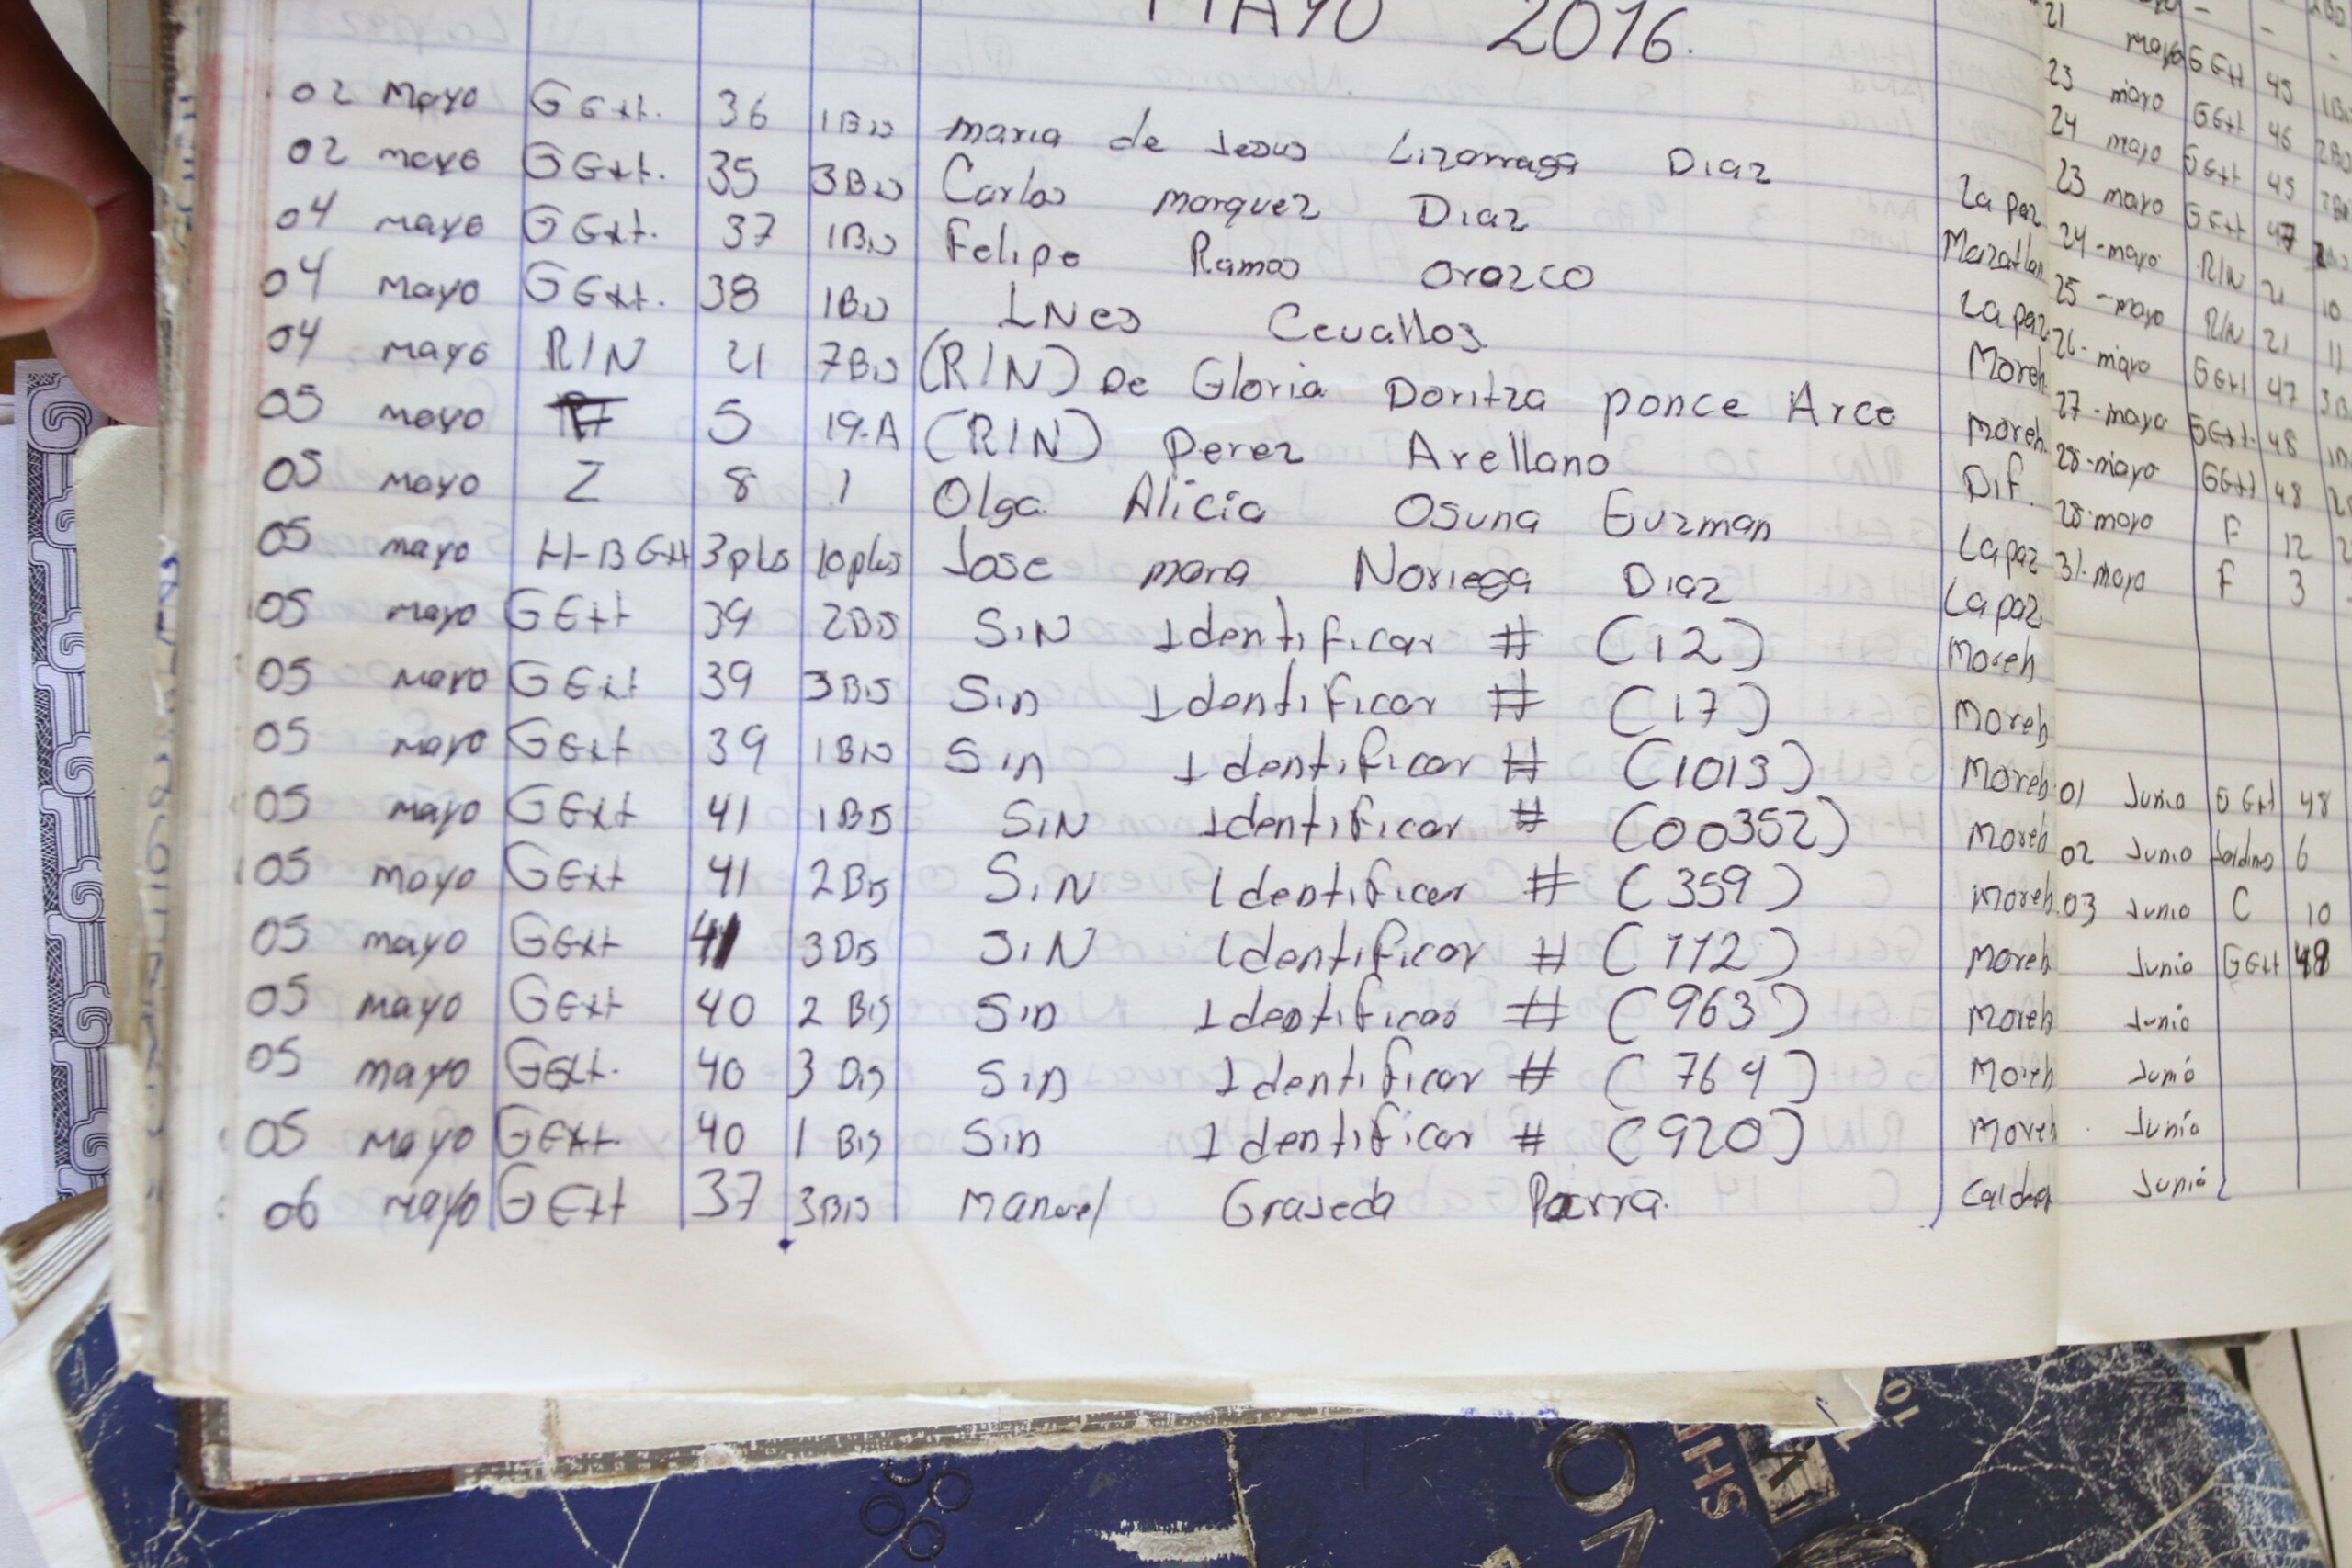 MAYO 2016.
02 mayo GExt. 36 1Bis maria de Jesus Lizarraga Diaz La paz
02 mayo GExt. 35 3Bis Carlos marquez Diaz Mazatlan
04 mayo GExt. 37 1Bis Felipe Ramos Orozco La paz
04 mayo GExt. 38 1Bis INes Cevallos Moreh
04 mayo R/N 21 7Bis (R/N) De Gloria Doritza ponce Arce Moreh
05 mayo 5 19-A (R/N) Perez Arellano Dif.
05 mayo Z 8 1 Olga Alicia Osuna Guzman La paz
05 mayo H-B GExt 3pls 10pls Jose maria Noriega Diaz La paz
05 mayo GExt 39 2Bis SiN Identificar # (12) Moreh
05 mayo GExt 39 3Bis Sin Identificar # (17) Moreh
05 mayo GExt 39 1Bis Sin Identificar # (1013) Moreh
05 mayo GExt 41 1Bis SiN Identificar # (00352) Moreh
05 mayo GExt 41 2Bis SiN Identificar # (359) Moreh
05 mayo GExt 41 3Bis SiN Identificar # (112) Moreh
05 mayo GExt 40 2 Bis Sin Identificar # (963) Moreh
05 mayo GExt. 40 3 Bis Sin Identificar # (764) Moreh
05 mayo GExt. 40 1 Bis Sin Identificar # (920) Moreh
06 mayo GExt 37 3Bis Manuel Graseda Parra.
21 mayo GExt 45
23 mayo GExt 46
24 mayo GExt 45
23 mayo GExt 47
24-mayo R/N 21 10
25-mayo R/N 21 11
26-mayo GExt 47
27-mayo GExt. 48
28-mayo GExt 48
28-mayo F 12
31-mayo F 3
01 Junio GExt 48
02 Junio Jardines 6
03 Junio C 10
Junio GExt 48
Junio
Junio
Junio
Junio